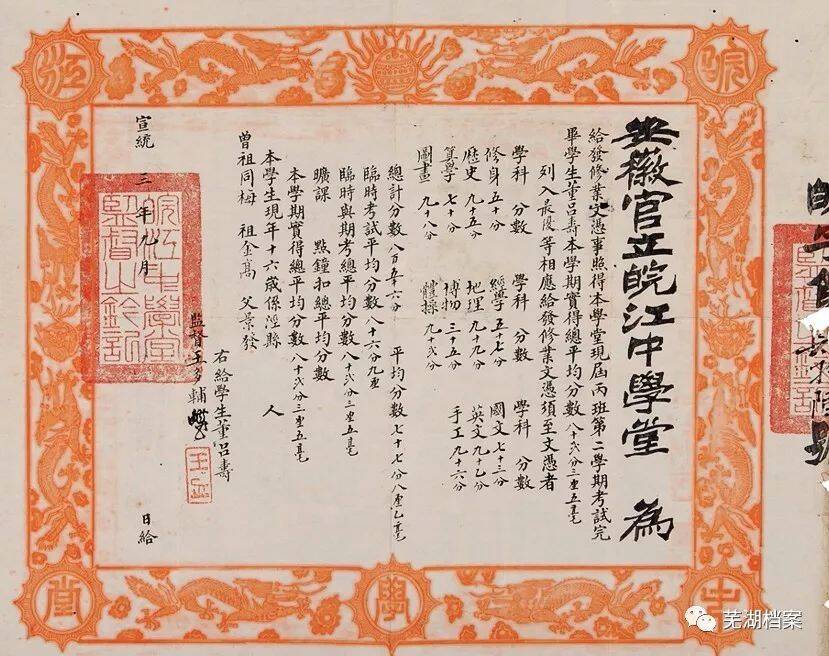 安徽官立皖江中學堂 為
給發修業文憑事照得本學堂現屆丙班第二學期考試完
畢學生董呂壽本學期實得總平均分數八十弍分三厘五毫
列入最優等相應給發修業文憑須至文憑者
學科 分數 學科 分數 學科 分數
修身 五十分 經學 五十七分 國文 七十三分
歷史 九十五分 地理 九十九分 英文 九十乙分
算學 七十分 博物 三十五分 手工 九十六分
圖畫 九十八分 體操 九十弍分
總計分數八百五十六分 平均分數七十七分八厘乙毫
臨時考試平均分數八十六分九厘
臨時與期考總平均分數八十弍分三厘五毫
曠課 點鐘扣總平均分數
本學期實得總平均分數八十弍分三厘五毫
本學生現年十六歲係涇縣 人
曾祖同梅 祖金萬 父景發
右給學生董呂壽
監督王多輔
宣統 三 年 九 月 日給
皖江中學堂
芜湖档案